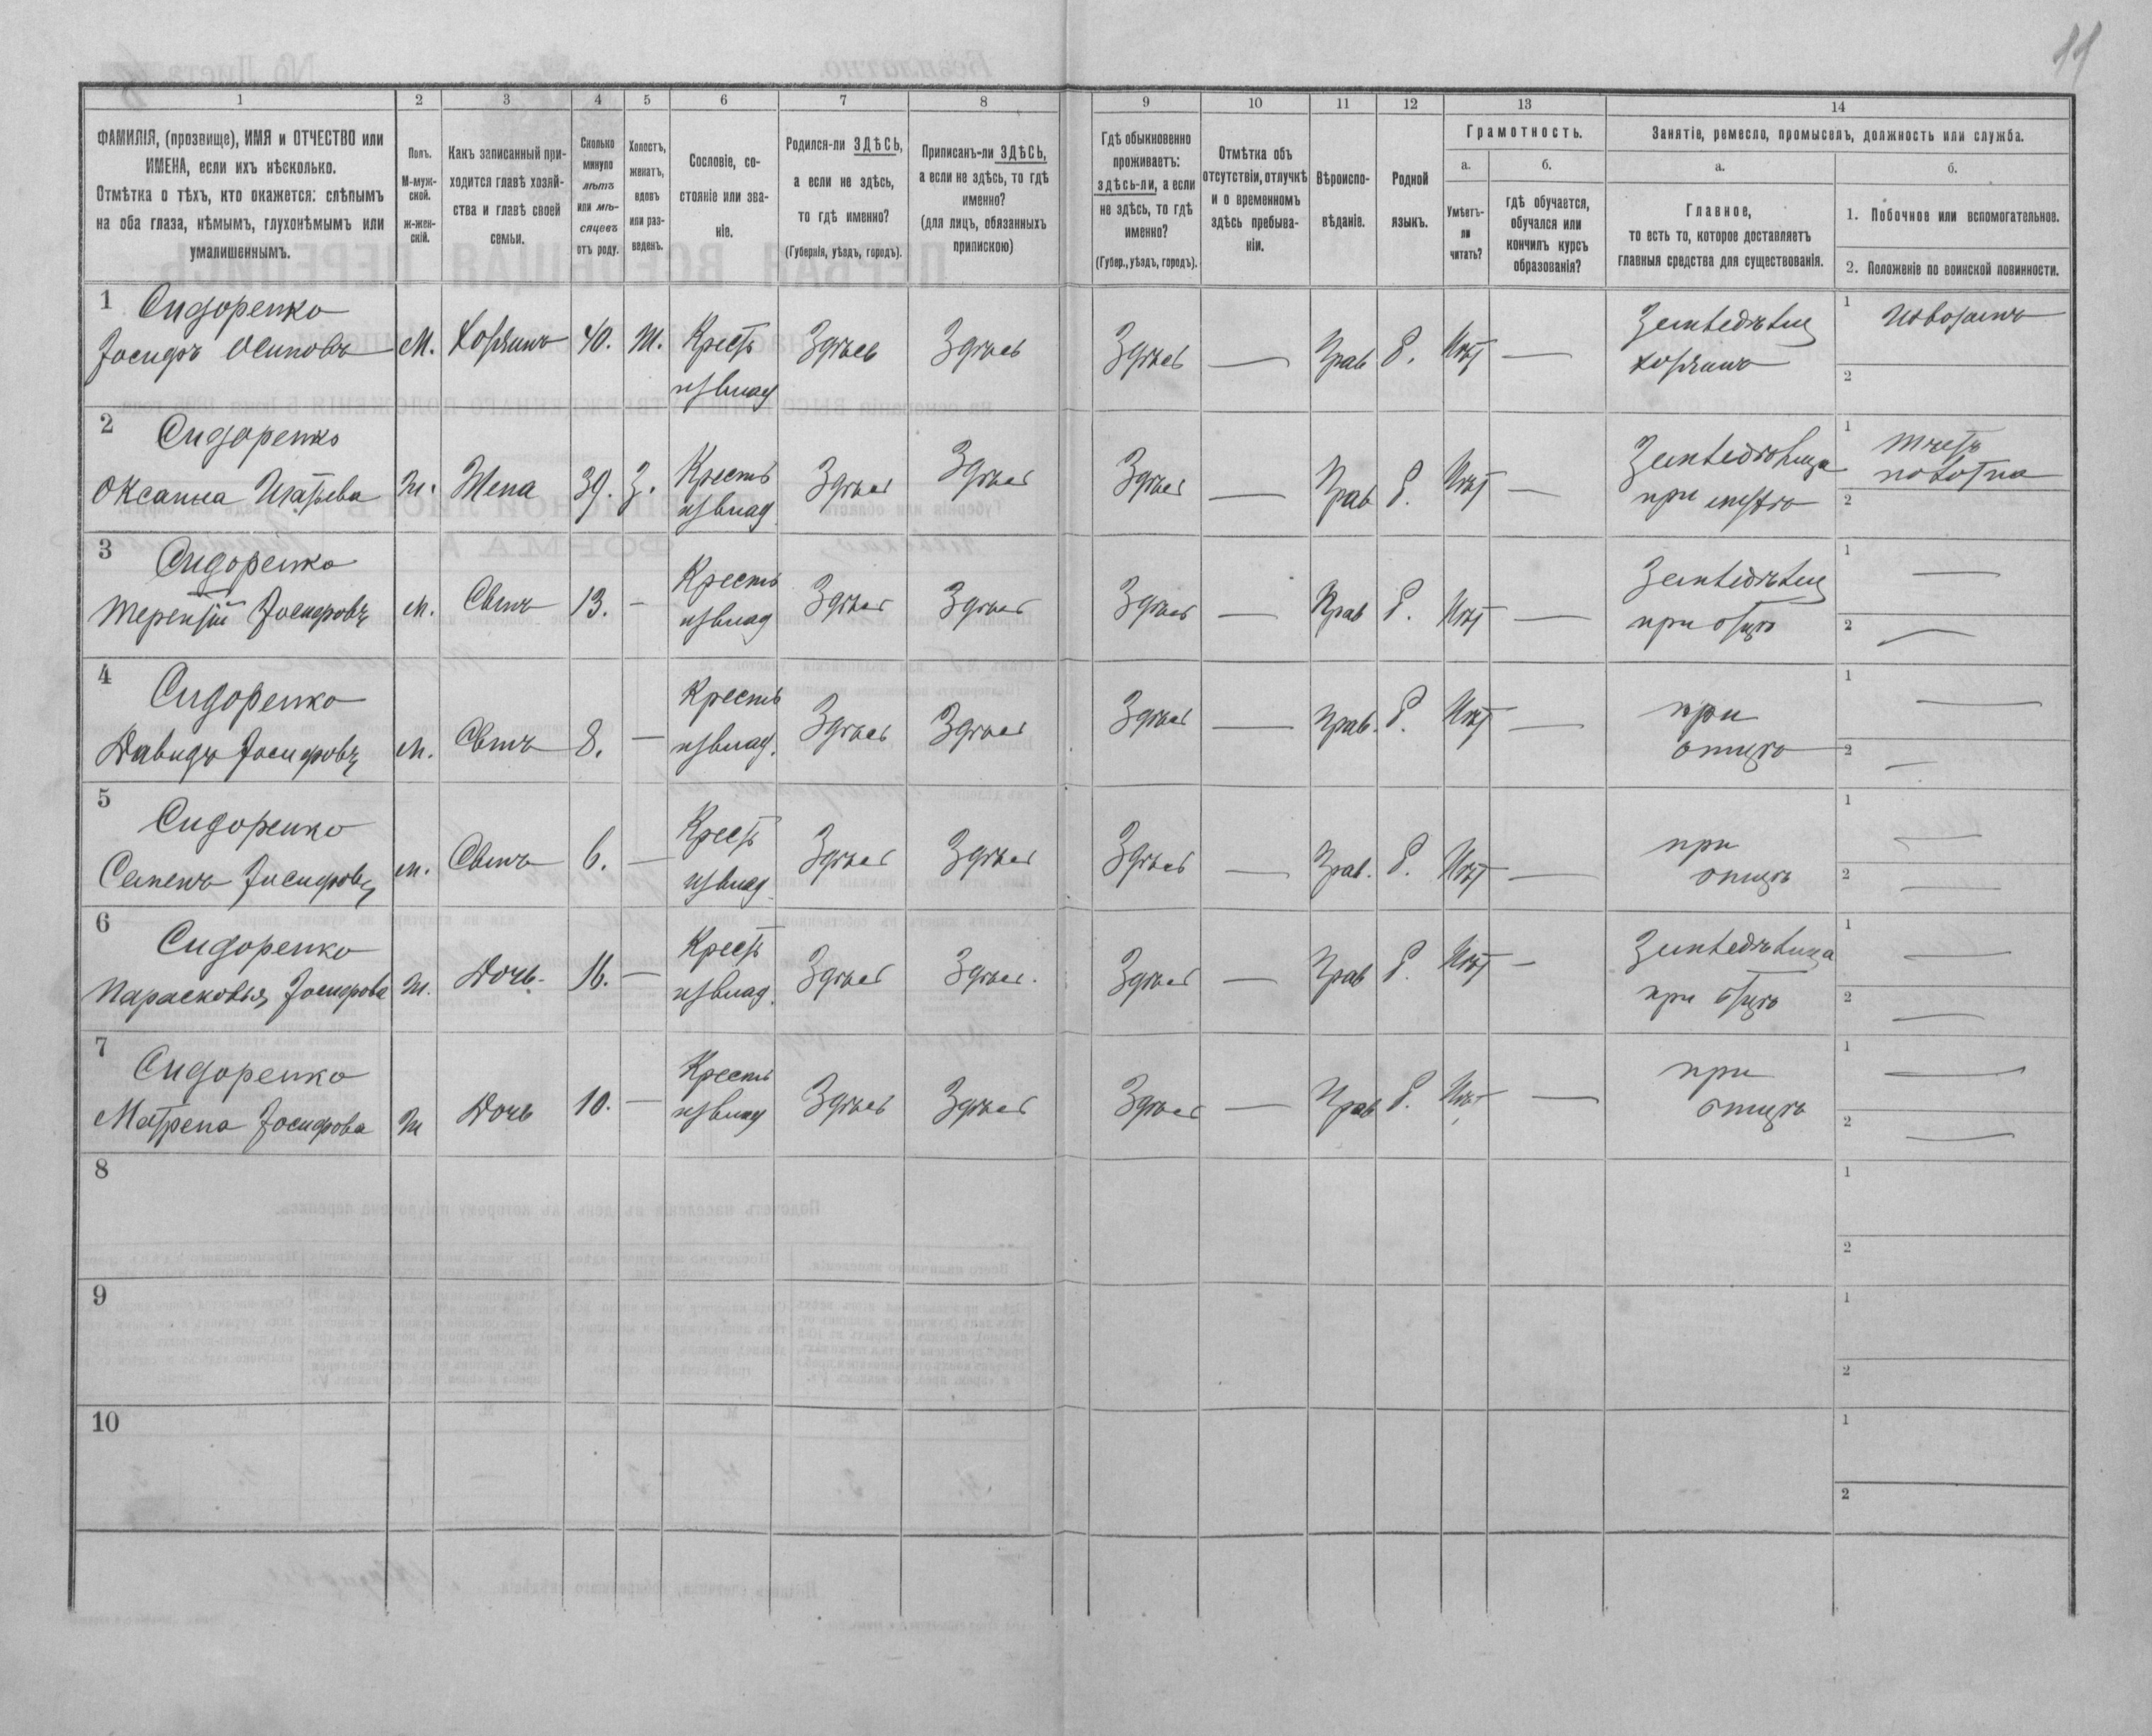 11
1 2 3 4 5 6 7 8 9 10 11 12 13 14
ФАМИЛІЯ, (прозвище), ИМЯ и ОТЧЕСТВО или
ИМЕНА, если ихъ нѣсколько.
Отмѣтка о тѣхъ, кто окажется: слѣпымъ
на оба глаза, нѣмымъ, глухонѣмымъ или
умалишеннымъ.
Полъ.
М-муж-
ской.
ж-жен-
скій.
Какъ записанный при-
ходится главѣ хозяй-
ства и главѣ своей
семьи.
Сколько
минуло
лѣтъ
или мѣ-
сяцевъ
отъ роду.
Холостъ,
женатъ,
вдовъ
или раз-
веденъ.
Сословіе, со-
стояніе или зва-
ніе.
Родился-ли ЗДѢСЬ,
а если не здѣсь,
то гдѣ именно?
(Губернія, уѣздъ, городъ).
Приписанъ-ли ЗДѢСЬ,
а если не здѣсь, то гдѣ
именно?
(для лицъ, обязанныхъ
припискою)
Гдѣ обыкновенно
проживаетъ:
здѣсь-ли, а если
не здѣсь, то гдѣ
именно?
(Губер., уѣздъ, городъ).
Отмѣтка объ
отсутствіи, отлучкѣ
и о временномъ
здѣсь пребыва-
ніи.
Вѣроиспо-
вѣданіе.
Родной
языкъ.
Грамотность.
а.
Умѣетъ-
ли
читать?
б.
гдѣ обучается,
обучался или
кончилъ курсъ
образованія?
Занятіе, ремесло, промыселъ, должность или служба.
а.
Главное,
то есть то, которое доставляетъ
главныя средства для существованія.
б.
1. Побочное или вспомогательное.
2. Положеніе по воинской повинности.
1 Сидоренко
Іосифъ Осиповъ М. Хозяинъ 40. Ж. Крестъ Здѣсь Здѣсь Здѣсь — Прав Нѣт —
Земледѣлец
хозяинъ
1
2
2 Сидоренко
Оксанна Игатьева Ж. Жена 39. З. Кресть Здѣсь Здѣсь Здѣсь — Прав Нѣт —
при
1 ткетъ
полотна
2
3 Сидоренко
Терентій Іосифовъ М. Сынъ 13. — Кресть Здѣсь Здѣсь Здѣсь — Прав Нѣт —
Земледѣлец
при отцѣ
1 —
2 —
4 Сидоренко
Давидъ Іосифовъ М. Сынъ 8. — Кресть Здѣсь Здѣсь Здѣсь — Прав. Нѣт —
при
отцѣ
1 —
2 —
5 Сидоренко
Семенъ Іосифовъ М. Сынъ 6. — Крестъ Здѣсь Здѣсь Здѣсь — Прав. Нѣт —
при
отцѣ
1 —
2 —
6 Сидоренко
Парасковья Іосифова Ж. Дочь 16. — Крестъ Здѣсь Здѣсь. Здѣсь — Прав Нѣт —
Земледѣлица
при отцѣ
1 —
2 —
7 Сидоренко
Матрена Іосифова Ж Дочь 10. — Кресть Здѣсь Здѣсь Здѣсь — Прав Нѣт —
при
отцѣ
1 —
2 —
8
1
2
9
1
2
10
1
2